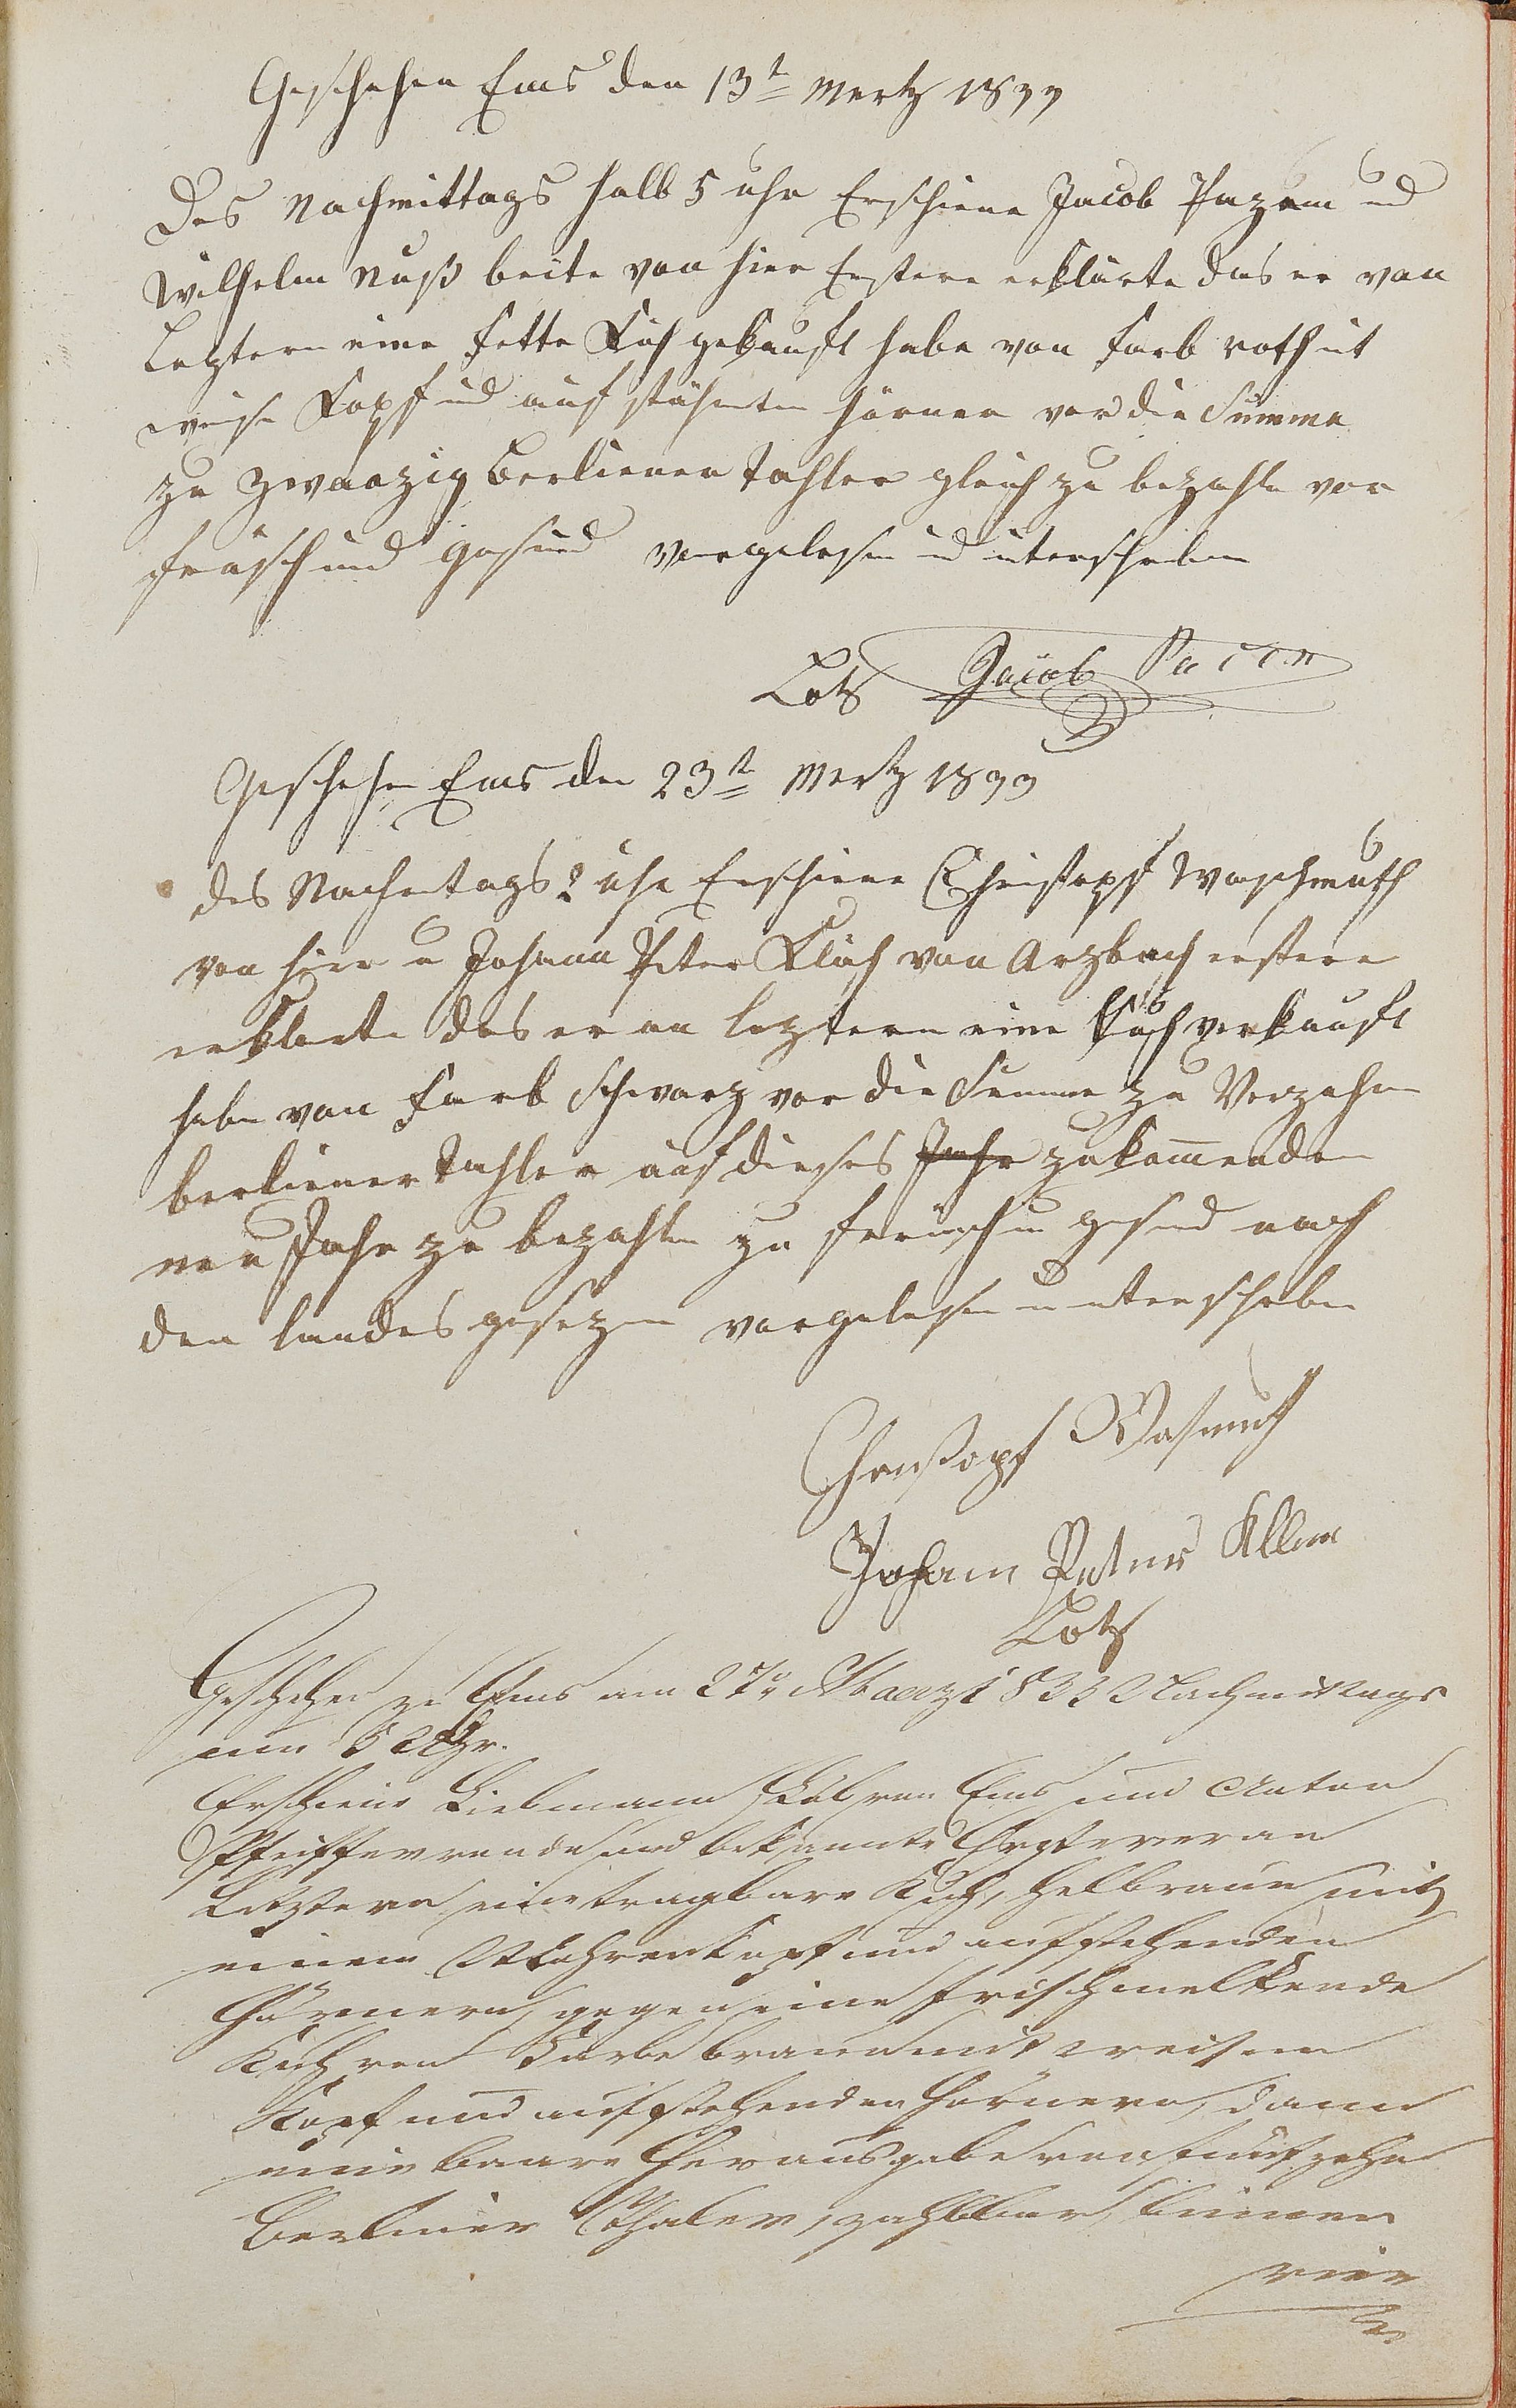 Geschehen Ems den 13t Mertz 1833
Des Nachmittags halb 5 uhr Erschiene Jacob Pazem und
Wilhelm Nuß beite von hier Erstere erklärte das er von
Leztern eine Fette Kuh gekauft habe von Farb roth mit
weise Kopf und auf stähenten Hörner vor die Summe
zu zwanzig Berliener Tahler gleich zu bezahle vor
früsch und gesund vorgelesen und unterschrieben
Lotz Jacob Pacem
Geschehen Ems den 23t Mertz 1833
des Nachmitags 2 uhr Erschiene Christopf Waschmuth
von hier u Johann Peter von Arzbach erstere
erklarte das er an leztern eine Kuh verkauft
habe von Farb Schwarz vor die Summe zu Verzehen
berliener Tahler auf dieses Jahr zukommenden
neu Jahr zu bezahlen zu früsch u gesund nach
den landes gesezen vorgelesen u unterschrieben
Christopf Wasmuth
Johann Peter
Lotz
Geschehen zu Ems am 27n Maerz 1833 Nachmittags
um 5 Uhr.
Erschiene Liebmann von Ems und Anton
Pfeiffer und bekannte Ersterer an
Letztern eine tragbare Kuh, helbraun mit
einem Mohrenkopf und aufstehenden
Hörnern, gegen eine frischmelkende
Kuh von Farbe braun mit weisem
Kopf und aufstehenden Hörnern, dann
eine baare Herausgabe von funfzehn
Berliner Thaler, zahlbar binnen
vier